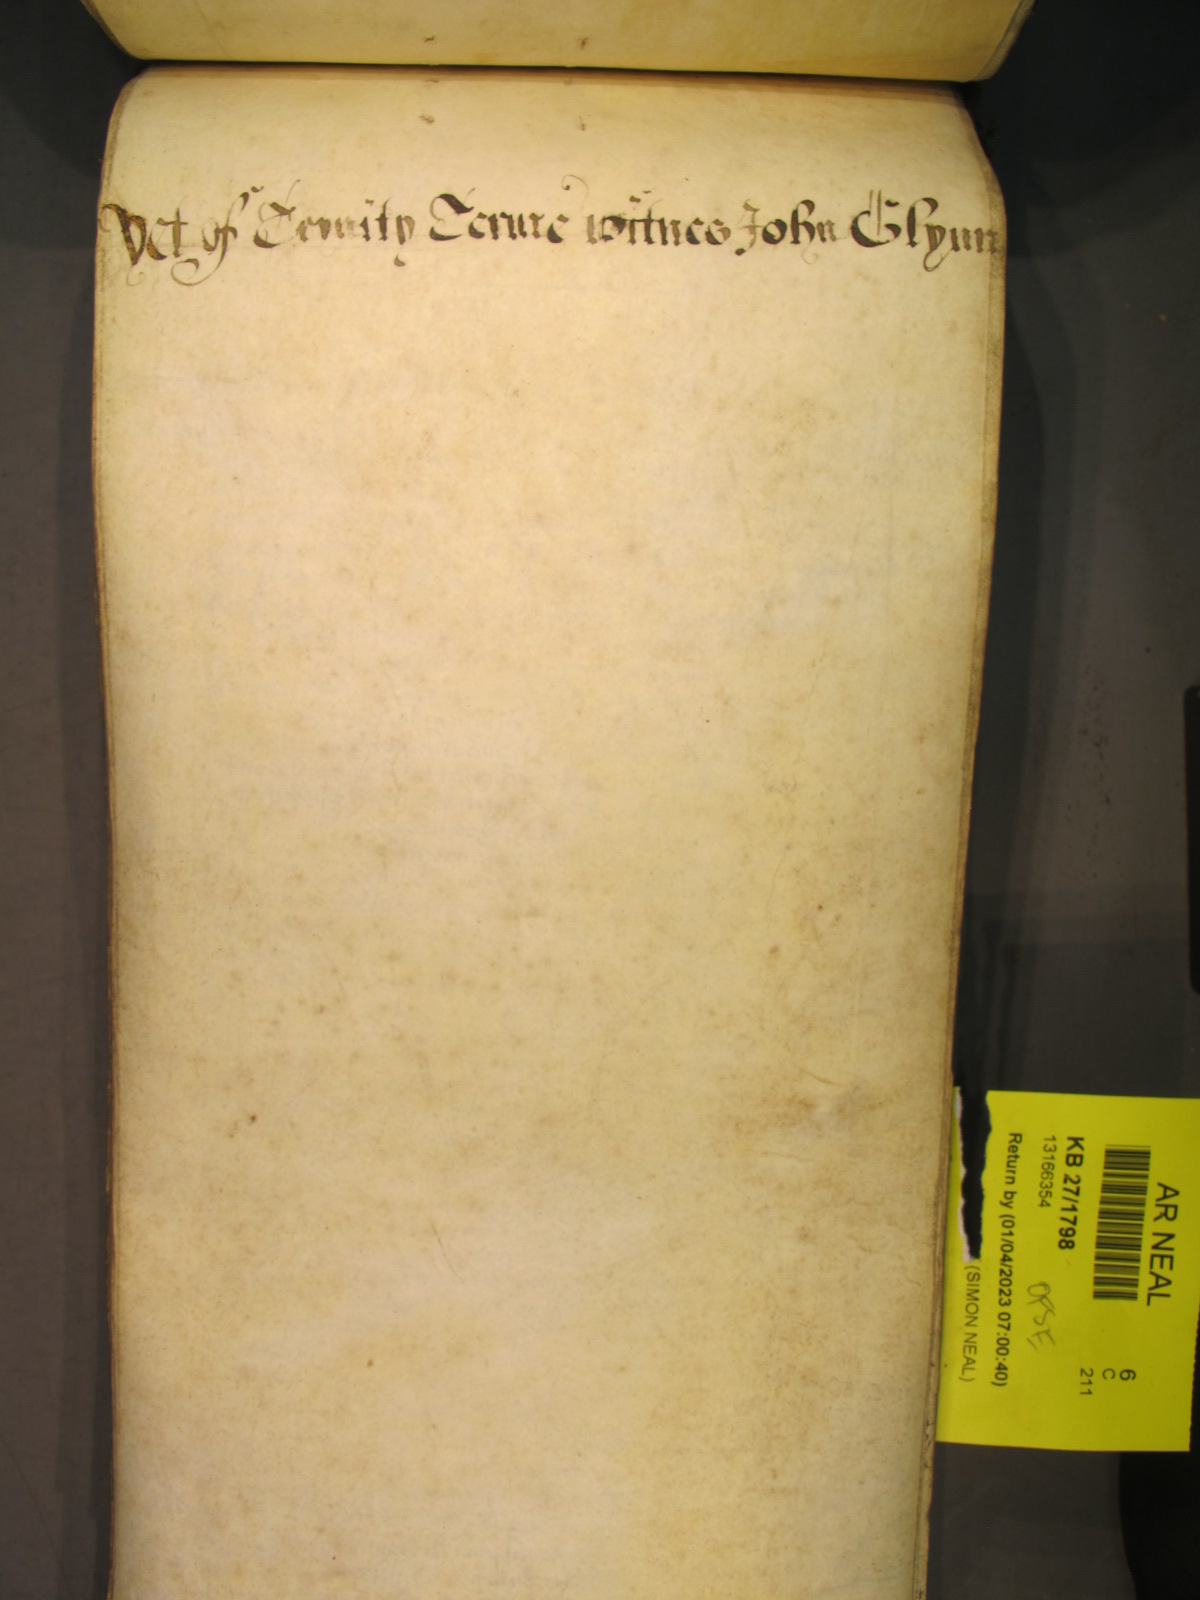 Yet of Trinity Terme witnes John Glynn
AR NEAL
6
C
211
KB 27/1798
13166354
OPSE
Return by (01/04/2023 07:00:40)
(SIMON NEAL)